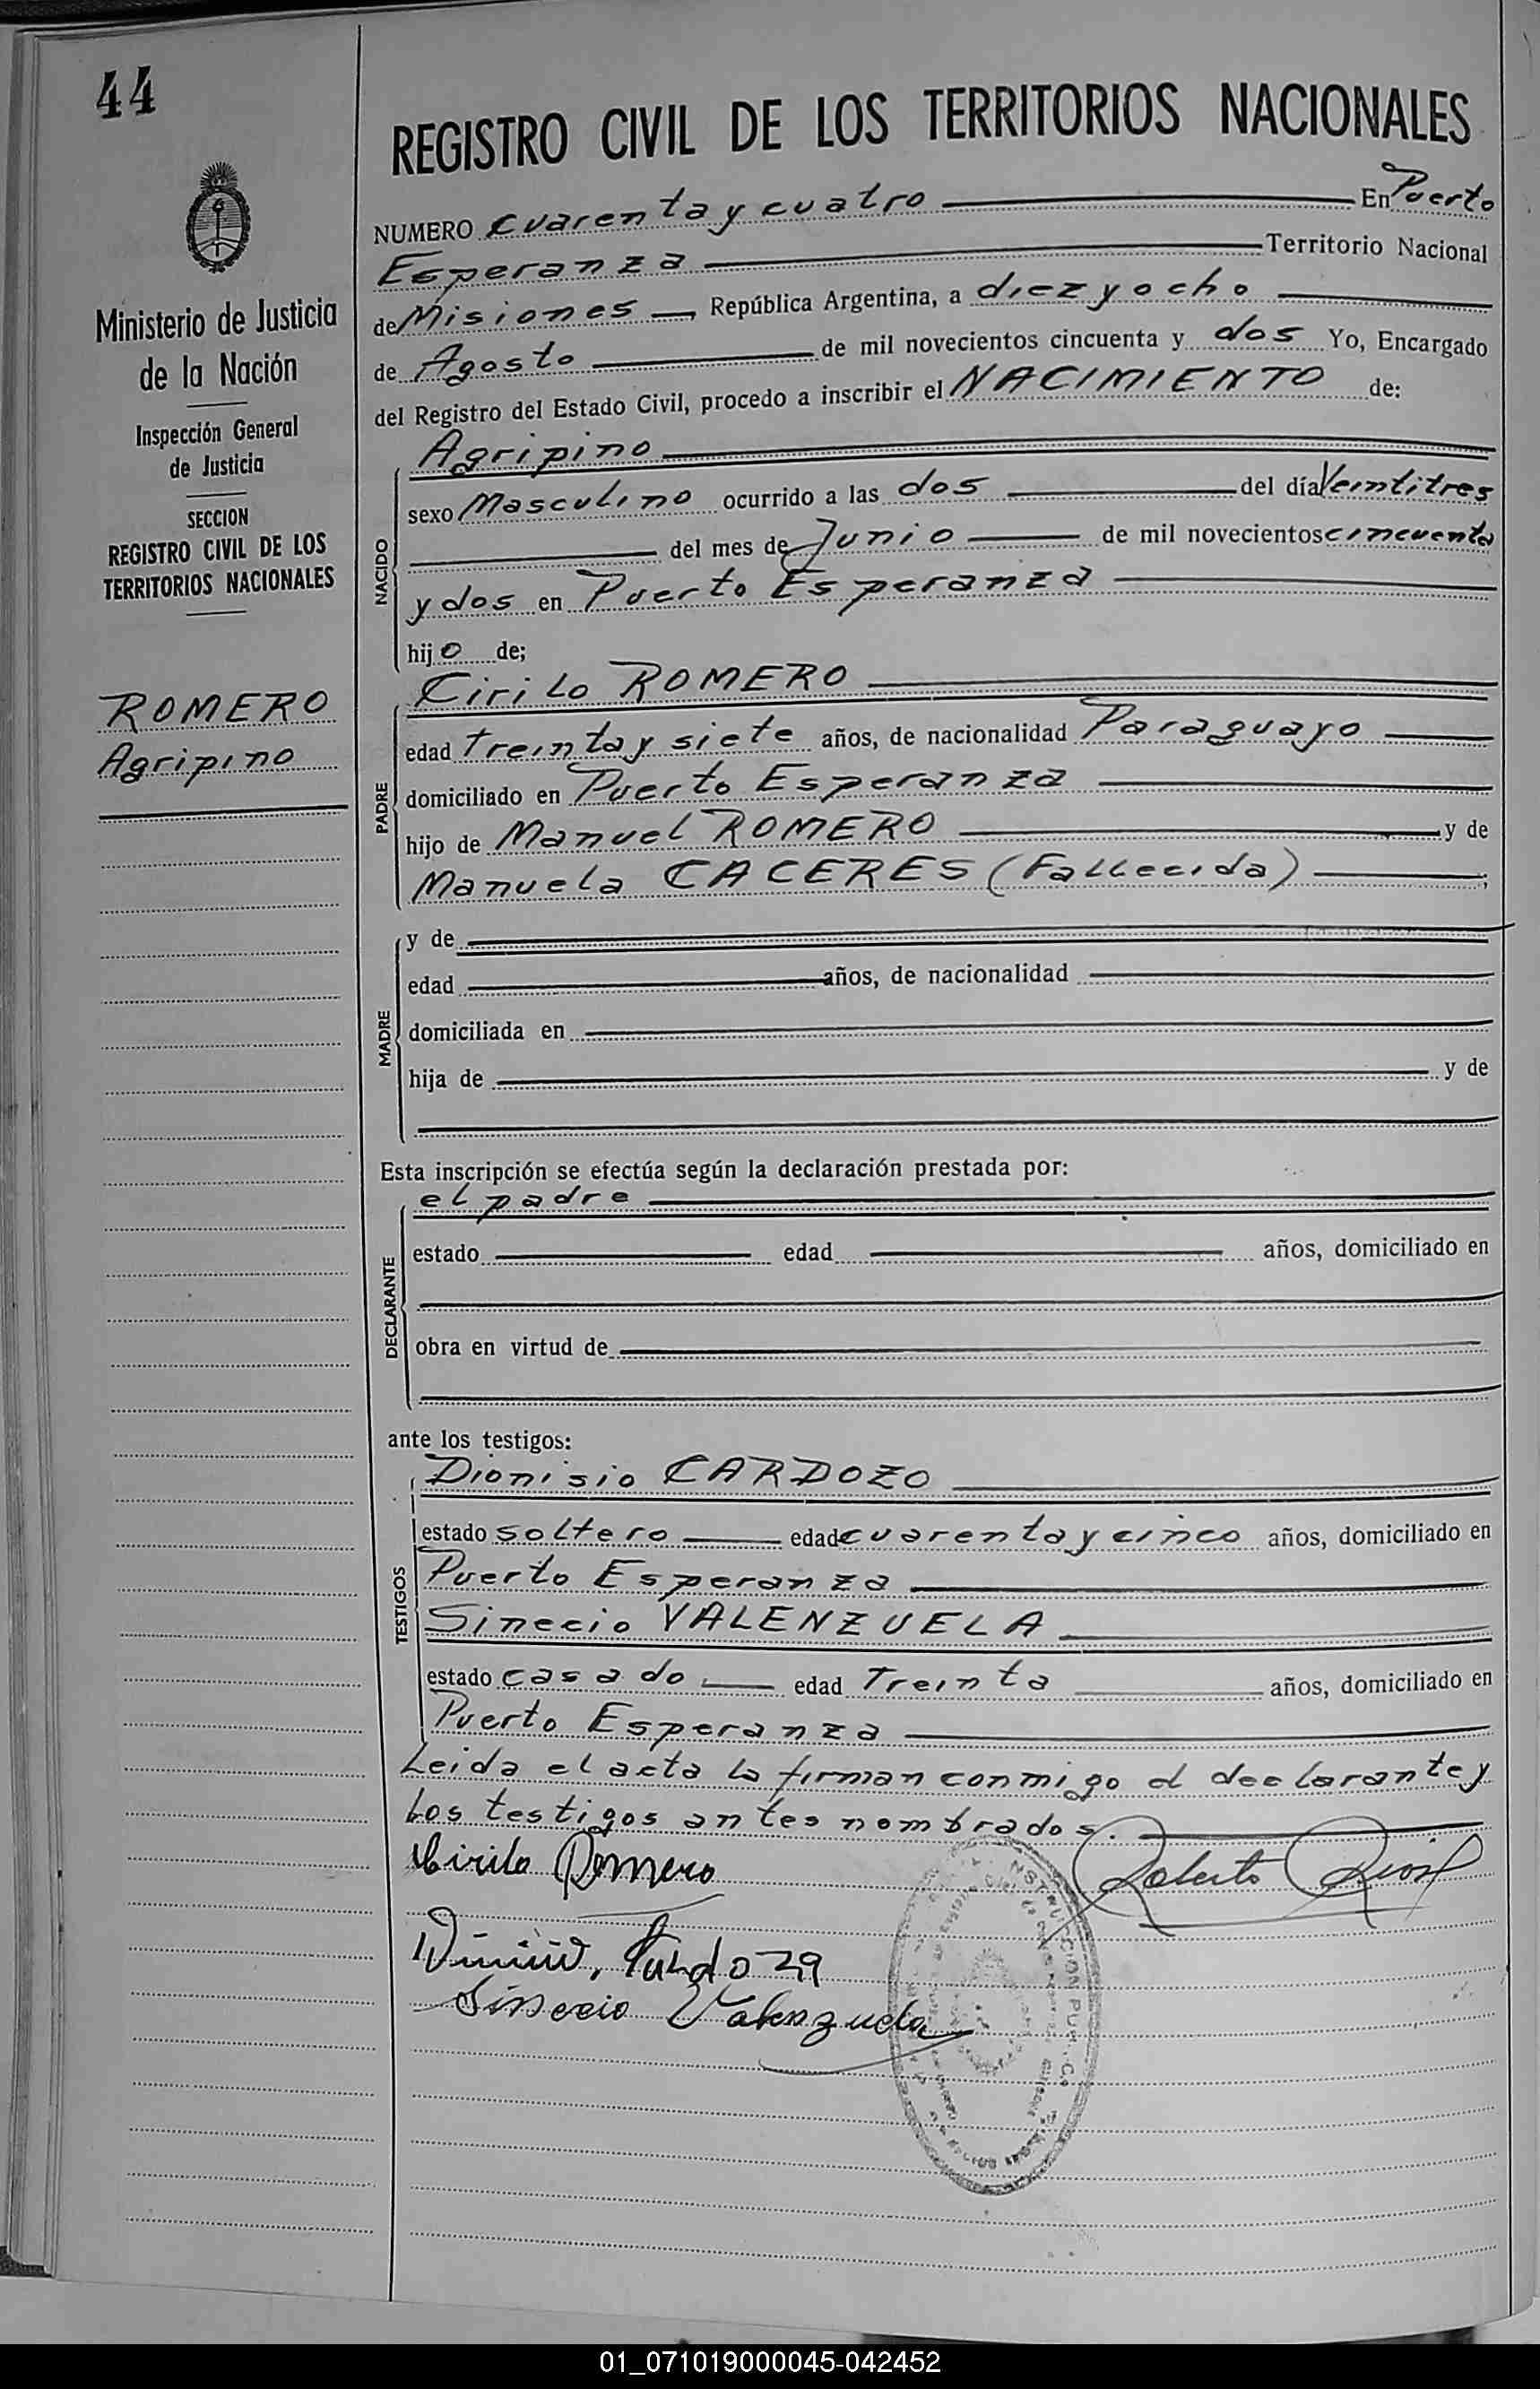 44
Ministerio de Justicia
de la Nación
Inspección General
de Justicia
SECCION
REGISTRO CIVIL DE LOS
TERRITORIOS NACIONALES
ROMERO
Agripino
REGISTRO CIVIL DE LOS TERRITORIOS NACIONALES
NUMERO cuarenta y cuatro En Puerto
Esperanza Territorio Nacional
de Misiones, República Argentina, a diez y ocho
de Agosto de mil novecientos cincuenta y dos Yo, Encargado
del Registro del Estado Civil, procedo a inscribir el NACIMIENTO de:
NACIDO
Agripino
sexo Masculino ocurrido a las dos del día Veintitres
del mes de Junio de mil novecientos cincuenta
y dos en Puerto Esperanza
hijo de;
PADRE
Cirilo ROMERO
edad treinta y siete años, de nacionalidad Paraguayo
domiciliado en Puerto Esperanza
hijo de Manuel ROMERO y de
Manuela CACERES (Fallecida);
MADRE
y de
edad años, de nacionalidad
domiciliada en
hija de y de
Esta inscripción se efectúa según la declaración prestada por:
DECLARANTE
el padre
estado edad años, domiciliado en
obra en virtud de
ante los testigos:
TESTIGOS
Dionisio CARDOZO
estado soltero edad cuarenta y cinco años, domiciliado en
Puerto Esperanza
Sinecio VALENZUELA
estado casado edad Treinta años, domiciliado en
Puerto Esperanza
Leida el acta la firman conmigo el declarante y
los testigos antes nombrados.
Cirilo Romero
Roberto
Sinecio Valenzuela
01_071019000045-042452